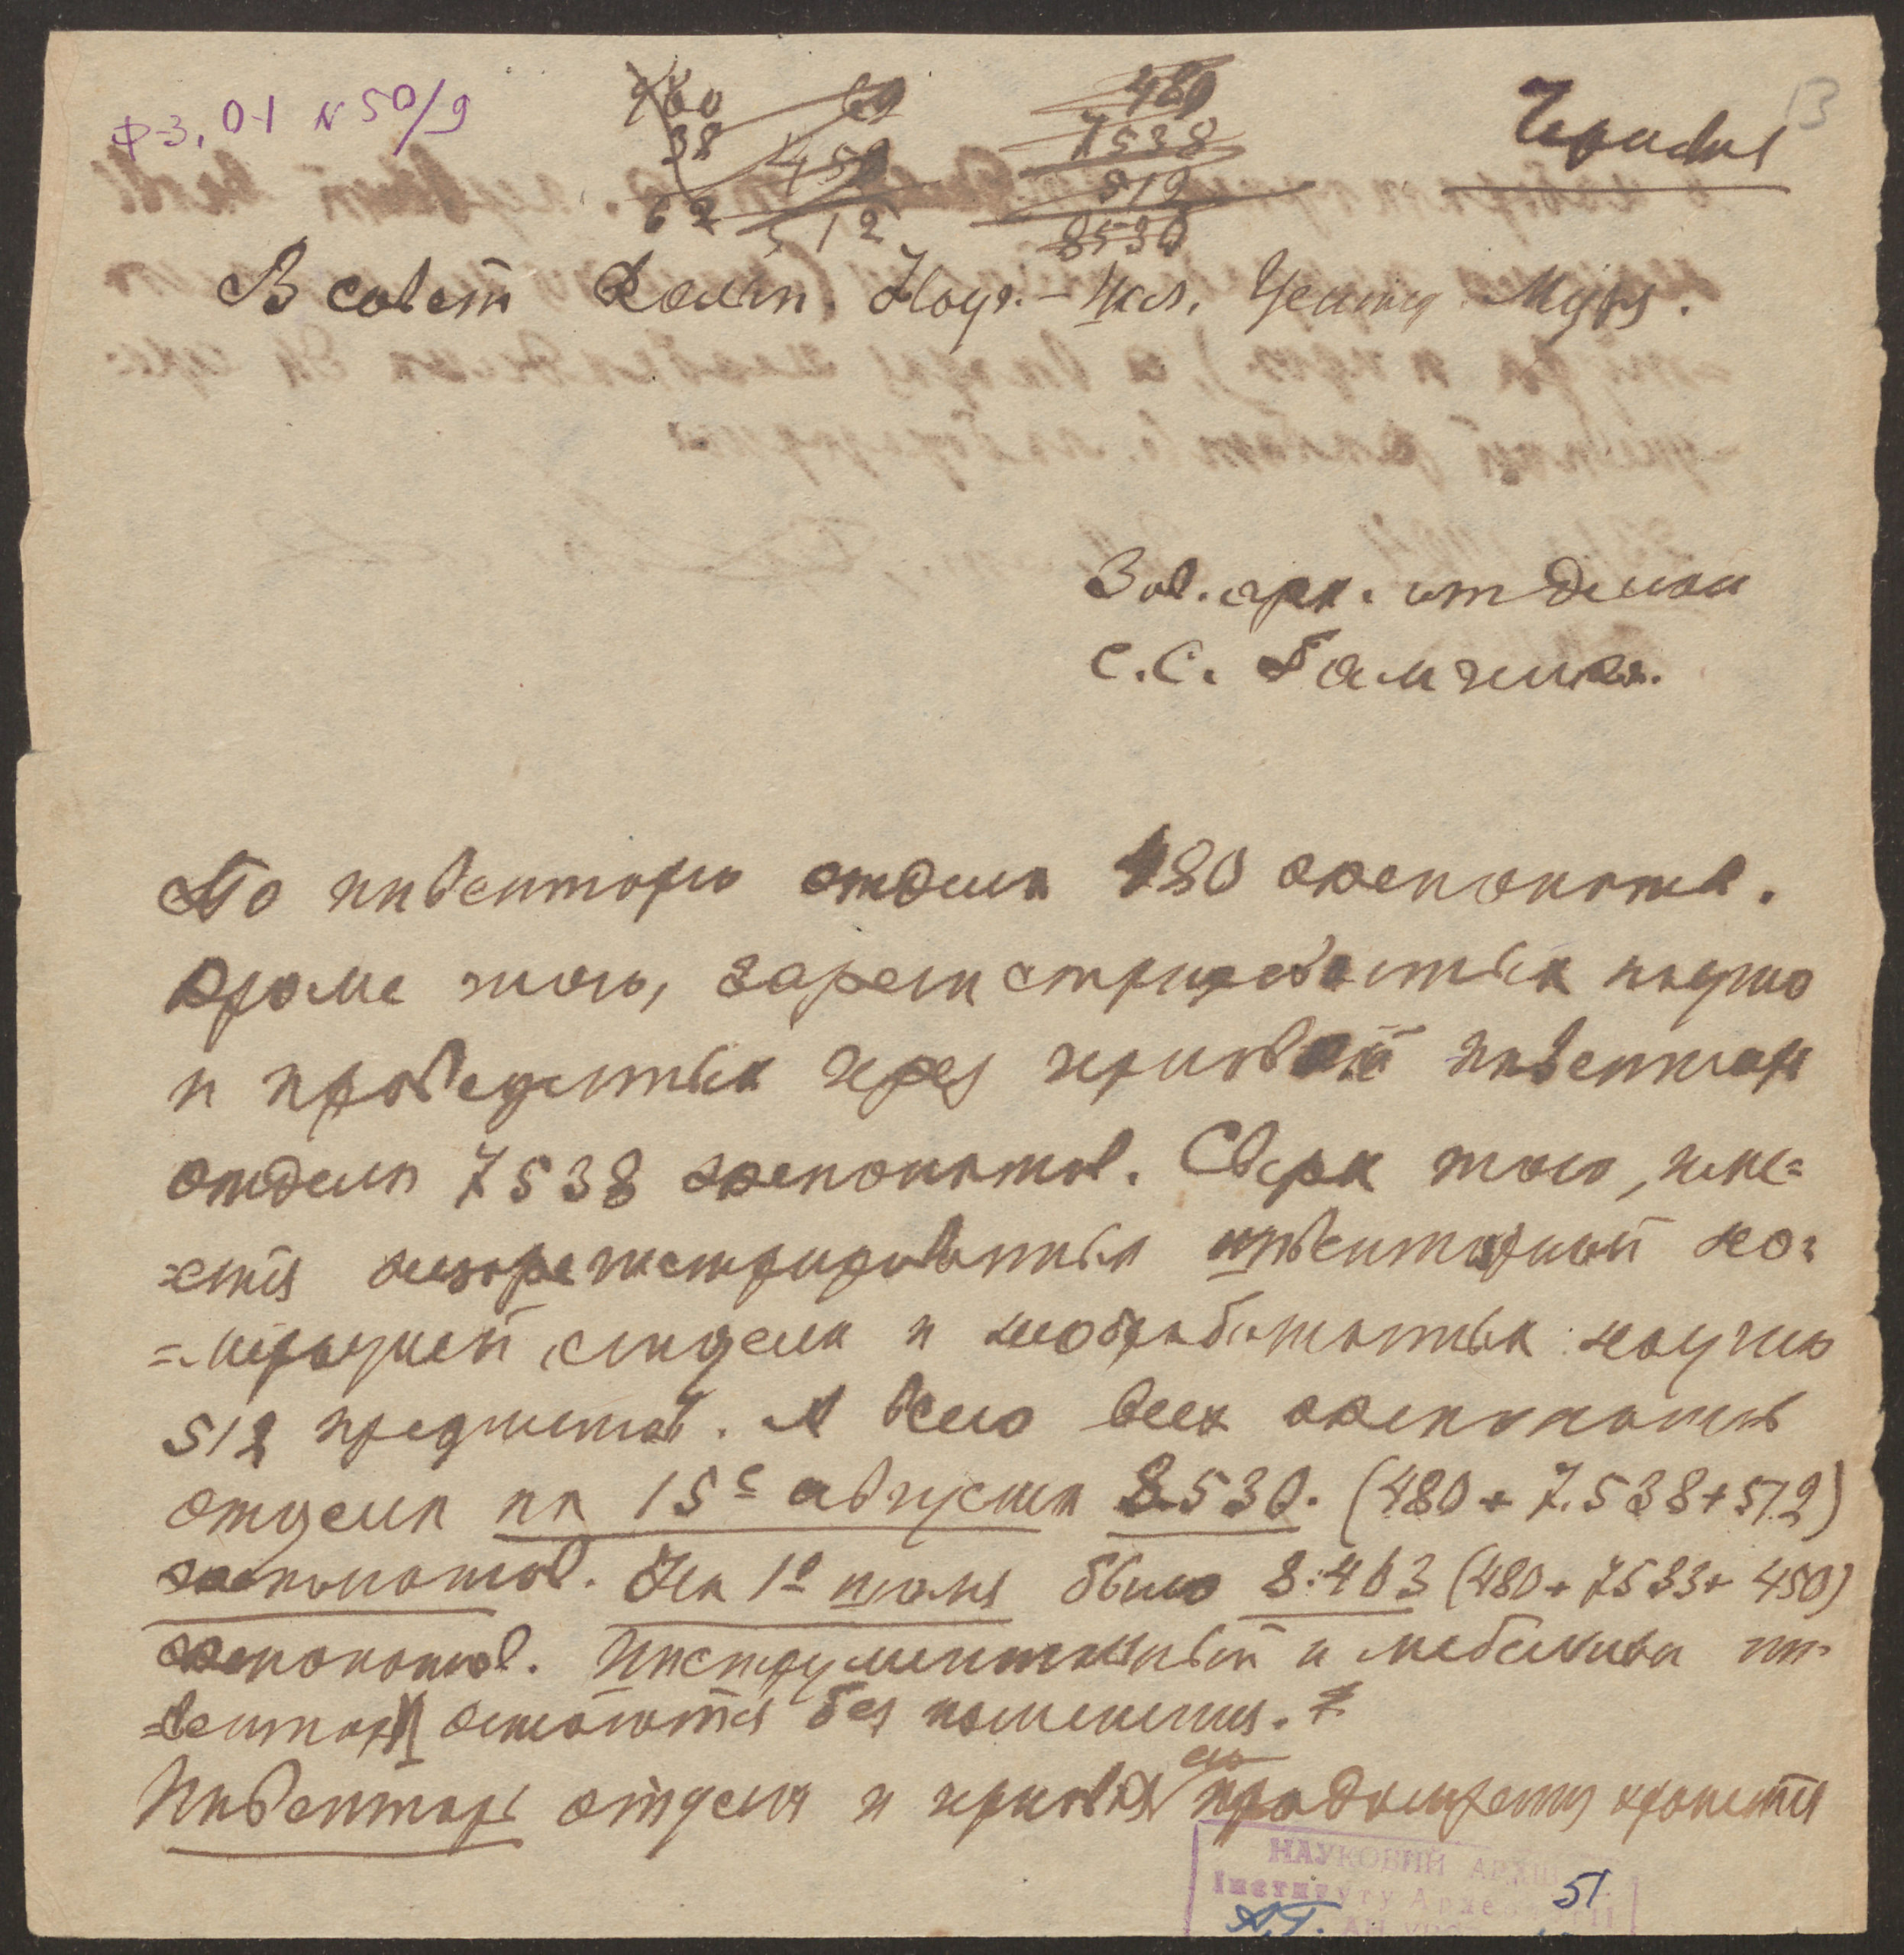 Ф-3, 01 N 50/9
13
460
38
62
69
450
512
480
7538
512
8530
В совет Науч. Центр. Муз.
Зав. арх. отдела
С.С. Гамченко.
По инвентарю отдела 480 экспонатов.
Кроме того, зарегистрированных научно
и проведенных через черновой инвентарь
отдела 7538 экспонатов. Сверх того, име=
=ется незарегистрированных инвентарной но=
=мерацией отдела и необработанных научно
512 предметов. А всего всех экспонатов
отдела на 15е августа 8.530. (480 + 7.538 + 512)
экспонатов. На 1е было 8.463 (480 + 7533 + 450)
экспонатов. Инструментальный и мебельный ин-
=вентари остаются без изменения.
Инвентарь отдела и черновая его хранится
НАУКОВИЙ АРХІВ
Інституту Археології
51
А.Г.